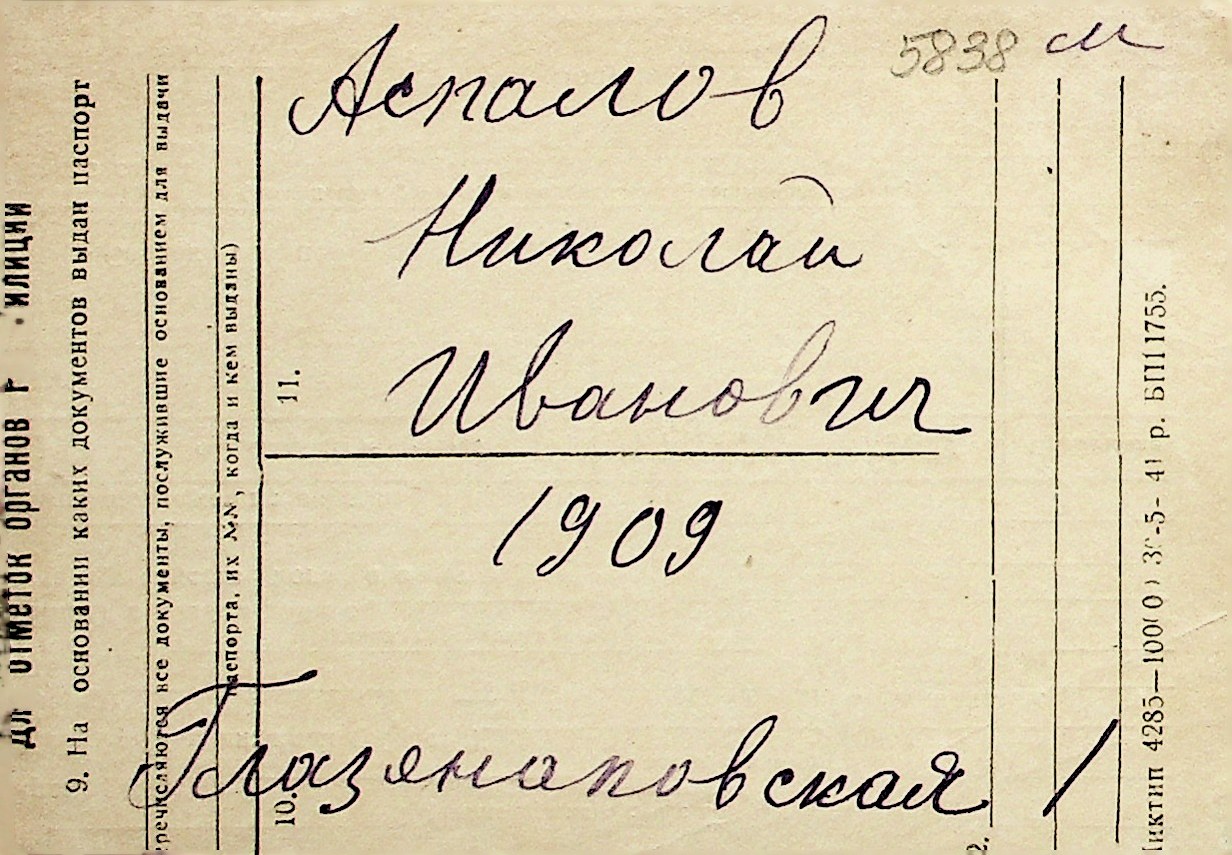 5838 м
Аспалов
Николай
Иванович
1909
Глазенаповская 1
Дл отметок органов г илиции
9. На основании каких документов выдан паспорт
еречисляются все документы, послужившие основанием для выдачи
паспорта, их №№, когда и кем выданы)
10.
11.
2.
4285—100(0) 3 -5- 41 р. БП11755.